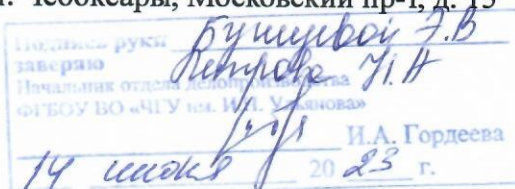 г. Чебоксары, Московский пр-т, д. 15
Подпись руки Бушуевой Э.В
заверяю Петрова Н.А
Начальник отдела делопроизводства
ФГБОУ ВО «ЧГУ им. И.Н. Ульянова»
И.А. Гордеева
14 июня 2023 г.